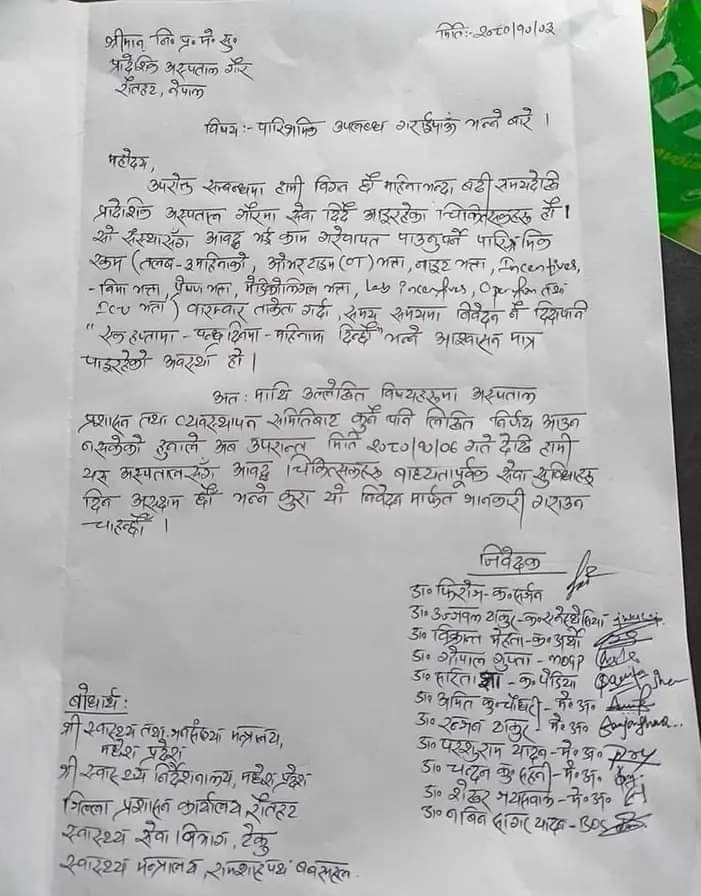 श्रीमान् नि॰ प्र॰ मे॰ सु॰
मिति:- २०८०/१०/०३
प्रादेशिक अस्पताल गौर
रौतहट, नेपाल
विषय:- पारिश्रमिक उपलब्ध गराईपाऊं भन्ने बारे ।
महोदय,
उपरोक्त सम्बन्धमा हामी विगत छौं महिना भन्दा बढी समयदेखि
प्रादेशिक अस्पताल गौरमा सेवा दिदैं आइरहेका चिकित्सकहरु हौं ।
यो संस्थासँग आवद्ध भई काम गरेवापत पाउनुपर्ने पारिश्रमिक
रकम (तलब - ३ महिनाको, ओभरटाइम (OT) भत्ता, नाइट भत्ता, Incentives,
- बिमा भत्ता, पोषण भत्ता, मेडिकोलिगल भत्ता, Lab Incentives, Operation तथा
ICU भत्ता) बारम्बार ताकेता गर्दा, समय समयमा निवेदन नै दिदापनि
"एक हप्तामा - पन्ध्र दिनमा - महिनामा दिन्छौं" भन्ने आश्वासन मात्र
पाइरहेको अवस्था हो ।
अत: माथि उल्लेखित विषयहरुमा अस्पताल
प्रशासन तथा व्यवस्थापन समितिबाट कुनै पनि लिखित निर्णय आउन
नसकेको हुनाले अब उपरान्त मिति २०८०/१०/०६ गते देखि हामी
यस अस्पताल सँग आवद्ध चिकित्सकहरु बाध्यतापूर्वक सेवा सुविधाहरु
दिन असक्षम छौं भन्ने कुरा यो निवेदन मार्फत जानकारी गराउन
चाहन्छौं ।
निवेदक
डा॰ फिरोज - क॰ सर्जन
डा॰ उज्जवल ठाकुर - क॰ एनेस्थेसिया
डा॰ विक्रान्त मेहता - क॰ अर्थो
डा॰ गोपाल गुप्ता - MDGP
डा॰ सरिता झा - क॰ पेडिया
डा॰ अमित कु॰ चौधरी - मे॰ अ॰
डा॰ रन्जन ठाकुर - मे॰ अ॰
डा॰ परशुराम यादव - मे॰ अ॰
डा॰ चन्दन कु॰ सहनी - मे॰ अ॰
डा॰ शेखर जयसवाल - मे॰ अ॰
डा॰ नबिन सागर यादव - BDS
बोधार्थ:
श्री स्वास्थ्य तथा जनसंख्या मन्त्रालय,
मधेश प्रदेश
श्री स्वास्थ्य निर्देशनालय, मधेश प्रदेश
जिल्ला प्रशासन कार्यालय, रौतहट
स्वास्थ्य सेवा विभाग, टेकु
स्वास्थ्य मन्त्रालय, रामशाहपथ